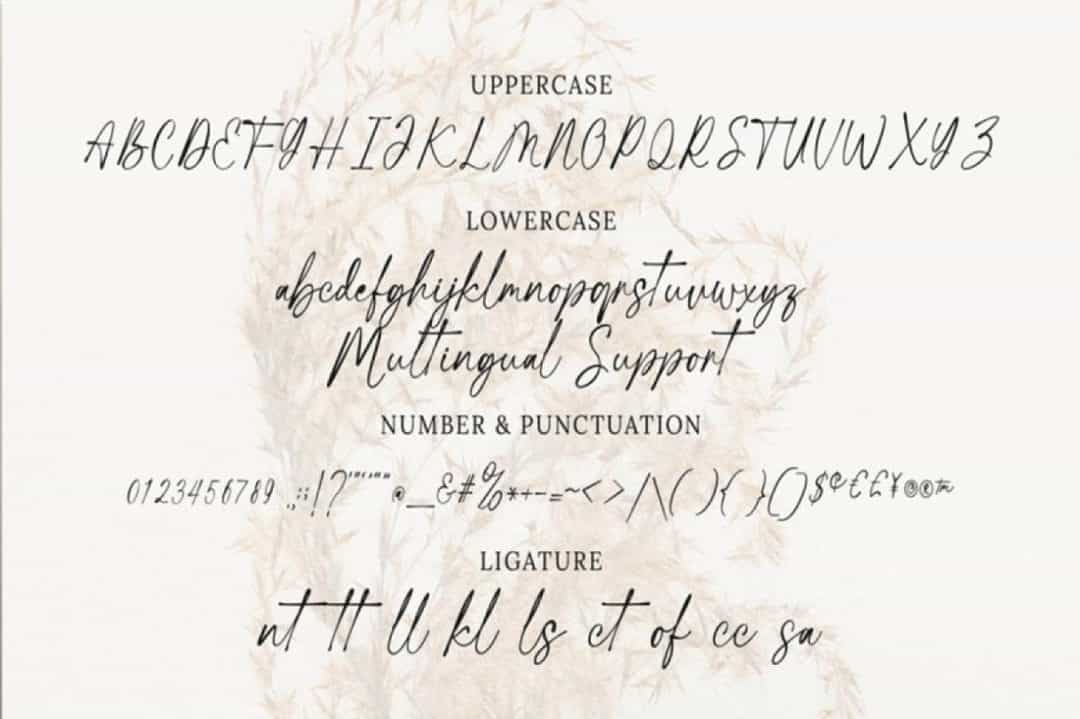 UPPERCASE
ABCDEFGHIJKLMNOPQRSTUVWXYZ
LOWERCASE
abcdefghijklmnopqrstuvwxyz
Multingual Support
NUMBER & PUNCTUATION
0123456789 .,:;!?'"‘’“” @_&#%*+-=~<>/\(){}[]$¢€£¥©®™
LIGATURE
nt tt ll kl ls ct of cc sa